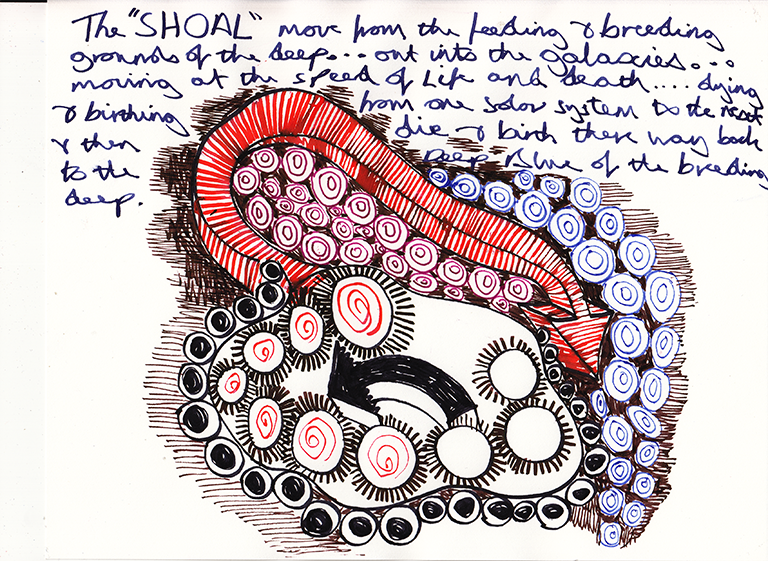 The "SHOAL" move from the feeding & breeding
grounds of the deep... out into the galaxies...
moving at the speed of Life and death.... dying
& birthing from one solar system to the next
& then die & birth there way back
to the Deep Blue of the breeding
deep.